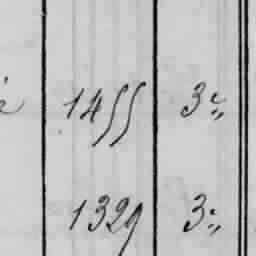 é 1455 3e,,
1329 3e,,